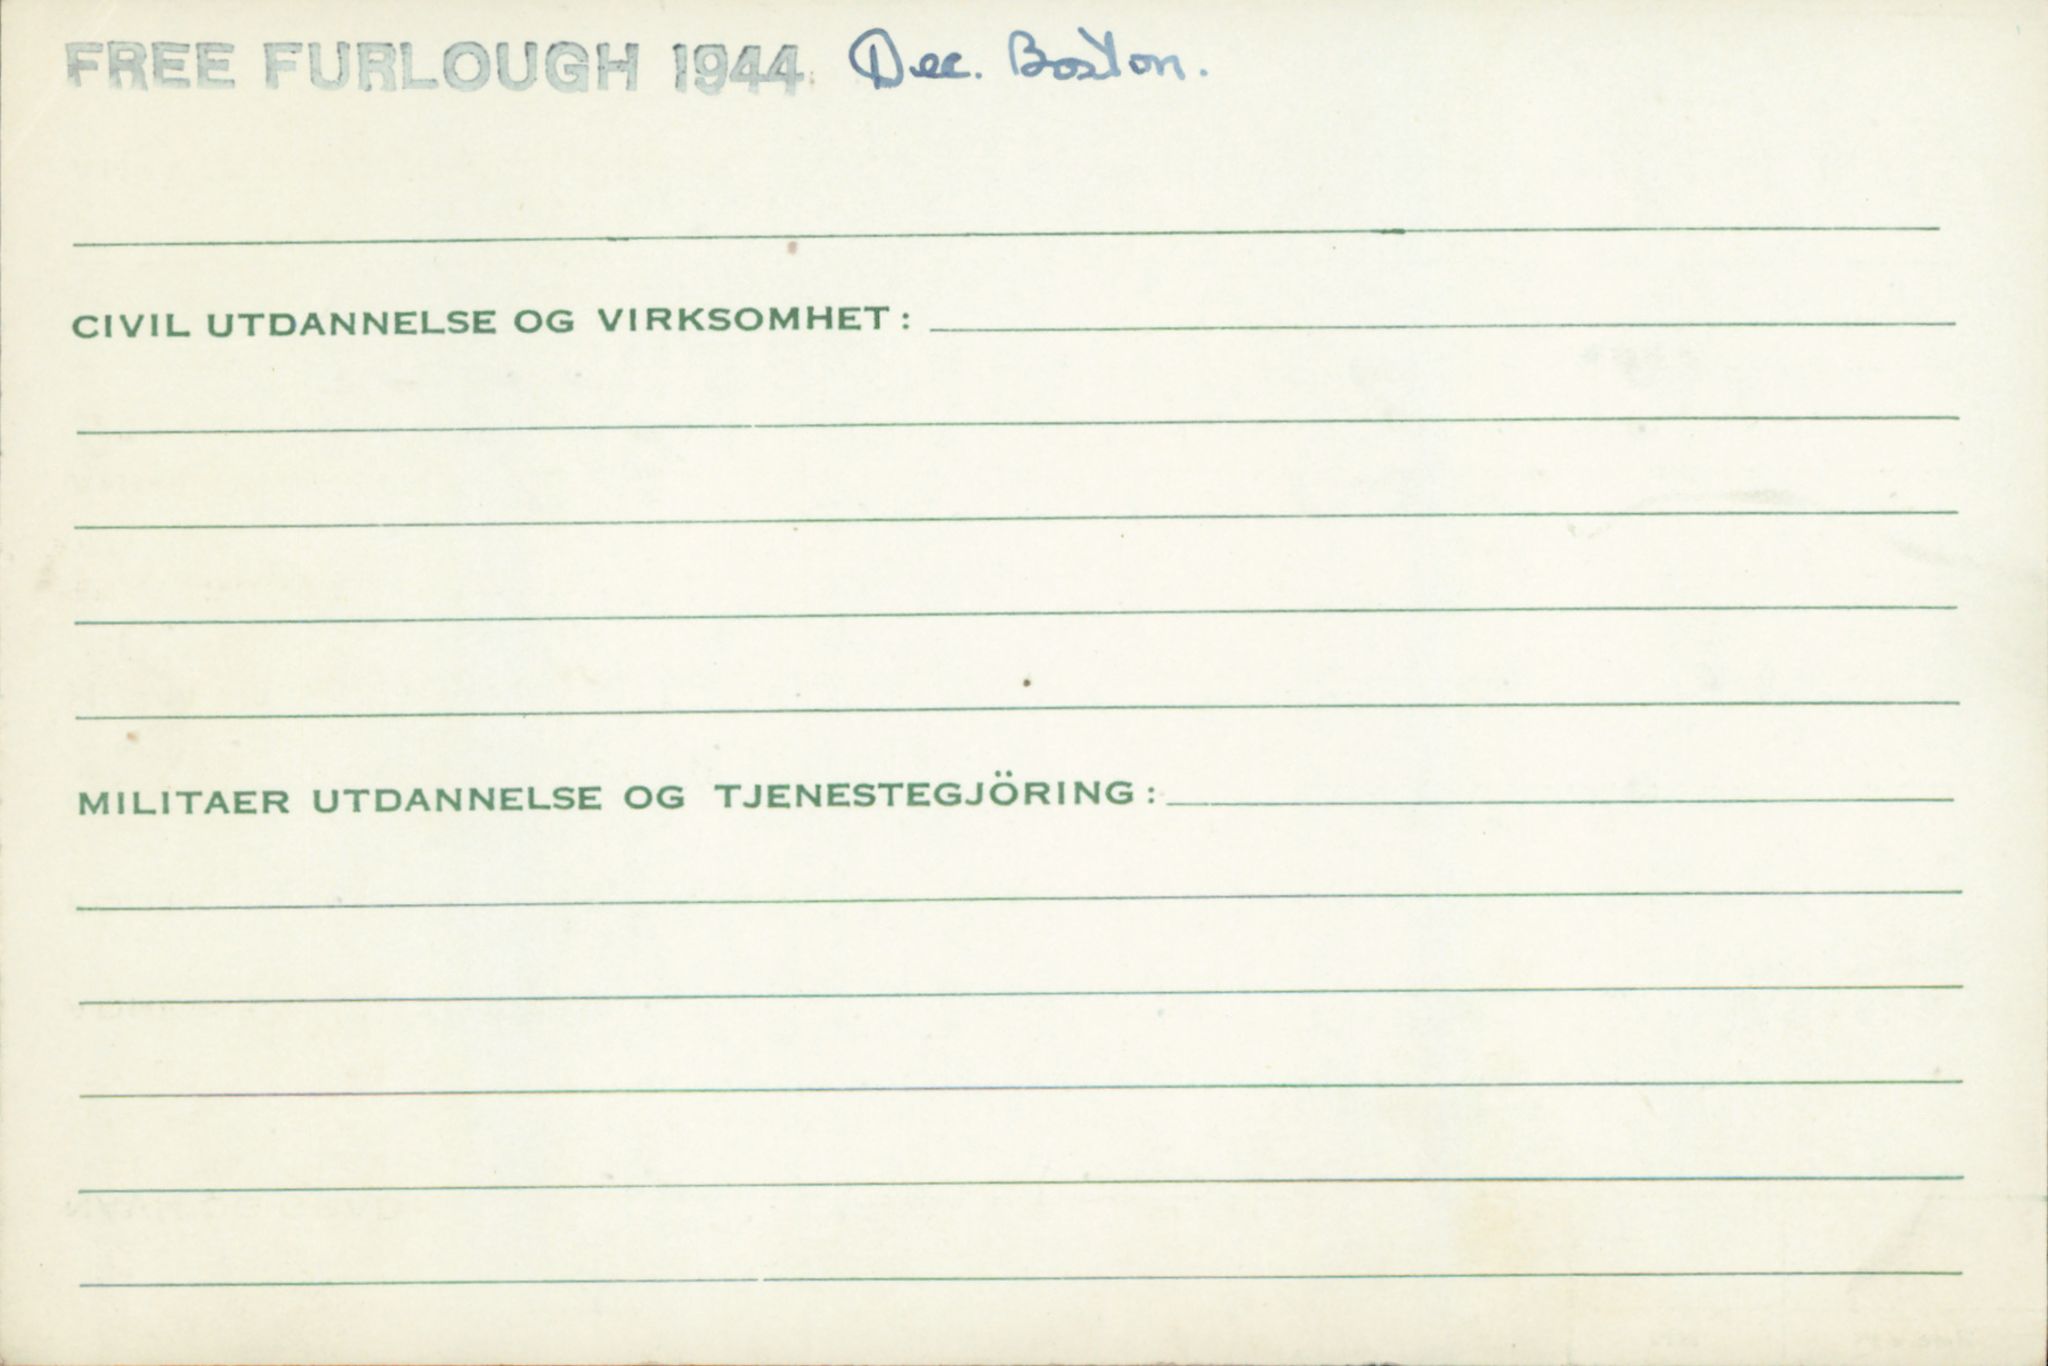 FREE FURLOUGH 1944 Dec. Boston.
CIVIL UTDANNELSE OG VIRKSOMHET:
MILITAER UTDANNELSE OG TJENESTEGJÖRING: